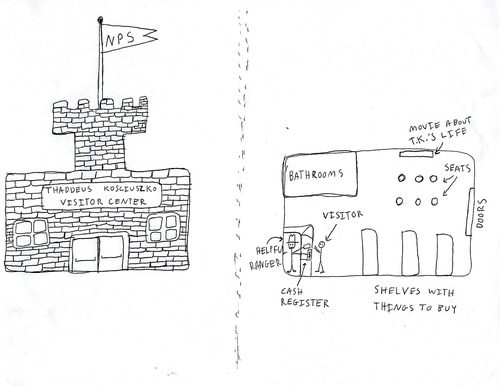 NPS
THADDEUS KOSCIUSZKO
VISITOR CENTER
MOVIE ABOUT
T.K.'S LIFE
BATHROOMS
SEATS
VISITOR
DOORS
HELPFUL
RANGER
CASH
REGISTER
SHELVES WITH
THINGS TO BUY